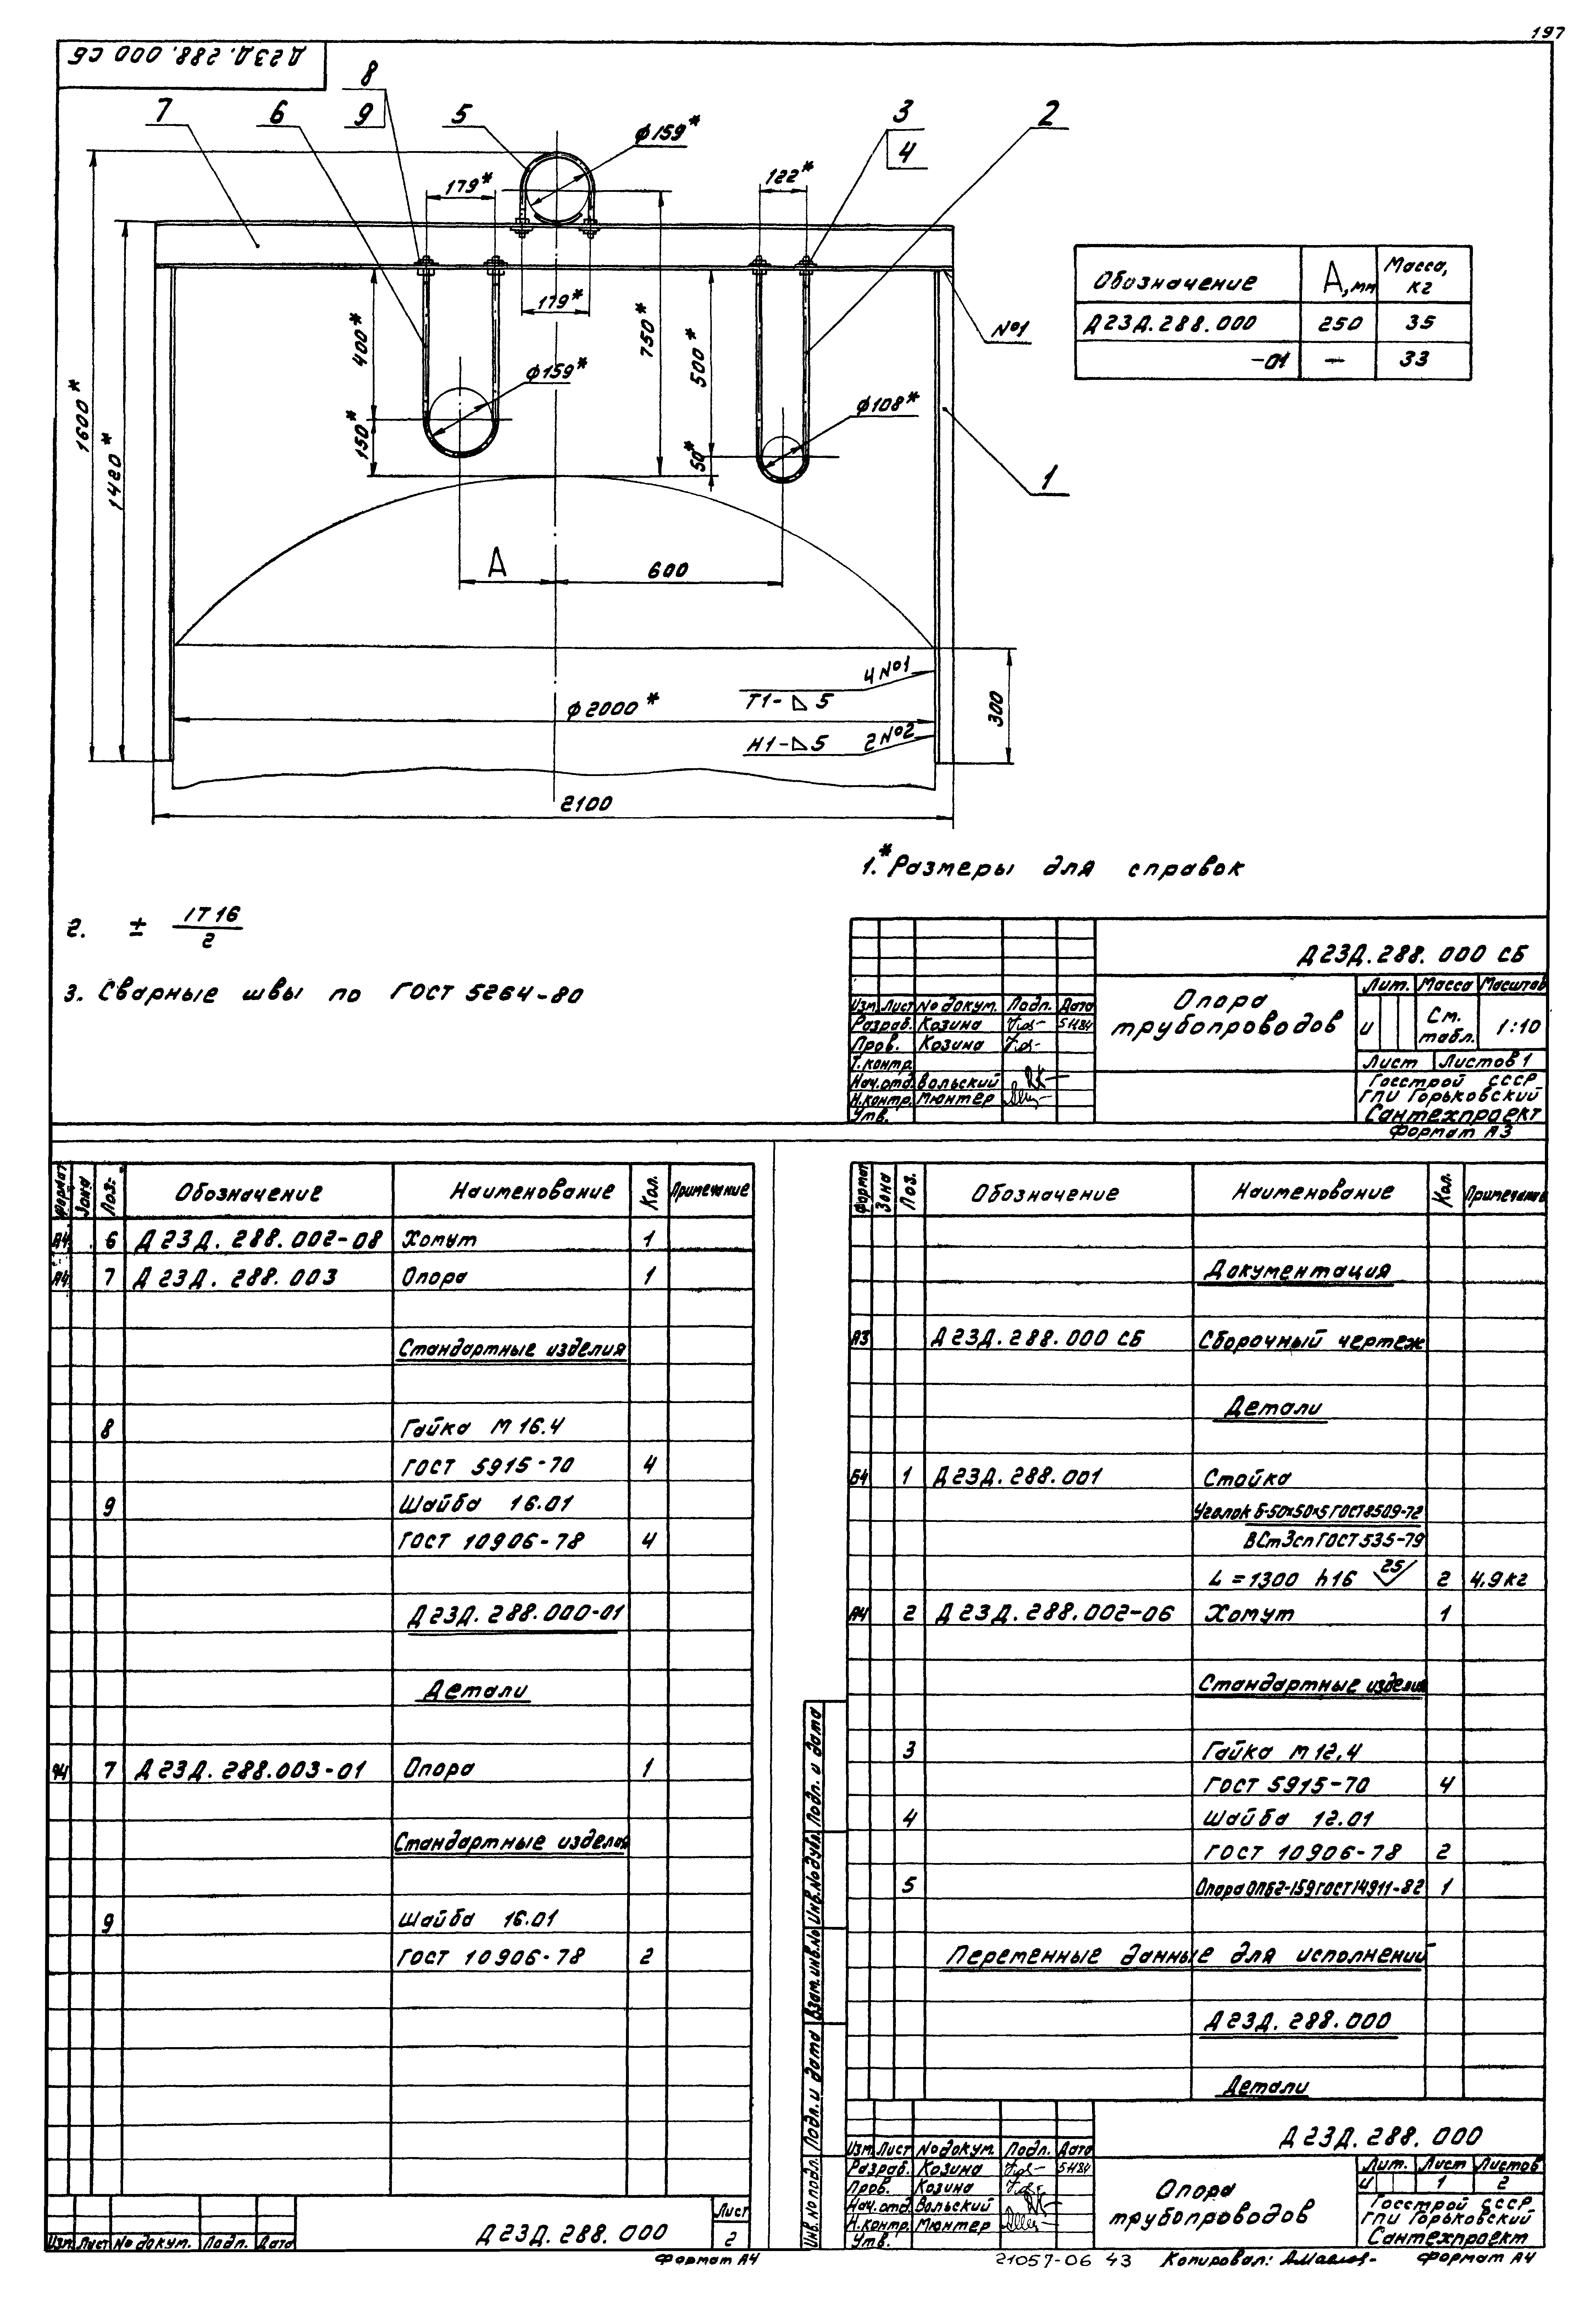 197
Д23Д.288.000 СБ
7
6
8
9
5
3
4
2
1
ф159*
179*
122*
179*
400*
150*
750*
500*
50*
ф159*
ф108*
1600*
1420*
№1
А
600
4 №1
Т1-◺5
ф2000*
Н1-◺5
2 №2
300
2100
Обозначение А, мм Масса, кг
Д23Д.288.000 250 35
-01 — 33
1.* Размеры для справок
2. ± IT16/2
3. Сварные швы по ГОСТ 5264-80
Д23Д.288.000 СБ
Опора трубопроводов
Лит. Масса Масштаб
и См. табл. 1:10
Лист Листов 1
Госстрой СССР
ГПИ Горьковский
Сантехпроект
Изм. Лист № докум. Подп. Дата
Разраб. Козина 5.11.84
Пров. Козина
Т.контр.
Нач.отд. Вольский
Н.контр. Мюнтер
Утв.
Формат А3
Формат Зона Поз. Обозначение Наименование Кол. Примечание
А4 6 Д23Д.288.002-08 Хомут 1
А4 7 Д23Д.288.003 Опора 1
Стандартные изделия
8 Гайка М16.4
ГОСТ 5915-70 4
9 Шайба 16.01
ГОСТ 10906-78 4
Д23Д.288.000-01
Детали
А4 7 Д23Д.288.003-01 Опора 1
Стандартные изделия
9 Шайба 16.01
ГОСТ 10906-78 2
Изм. Лист № докум. Подп. Дата
Д23Д.288.000
Лист
2
Формат А4
Формат Зона Поз. Обозначение Наименование Кол. Примечание
Документация
А3 Д23Д.288.000 СБ Сборочный чертеж
Детали
Б4 1 Д23Д.288.001 Стойка
Уголок Б-50х50х5 ГОСТ 8509-72
ВСт3сп ГОСТ 535-79
L=1300 h16 25 2 4,9кг
А4 2 Д23Д.288.002-06 Хомут 1
Стандартные изделия
3 Гайка М12.4
ГОСТ 5915-70 4
4 Шайба 12.01
ГОСТ 10906-78 2
5 Опора ОПБ2-159 ГОСТ 14911-82 1
Переменные данные для исполнений
Д23Д.288.000
Детали
Инв.№ подл. Подп. и дата Взам.инв.№ Инв.№ дубл. Подп. и дата
Д23Д.288.000
Изм. Лист № докум. Подп. Дата
Разраб. Козина 5.11.84
Пров. Козина
Нач.отд. Вольский
Н.контр. Мюнтер
Утв.
Опора трубопроводов
Лит. Лист Листов
и 1 2
Госстрой СССР
ГПИ Горьковский
Сантехпроект
21057-06 43 Копировал: Формат А4